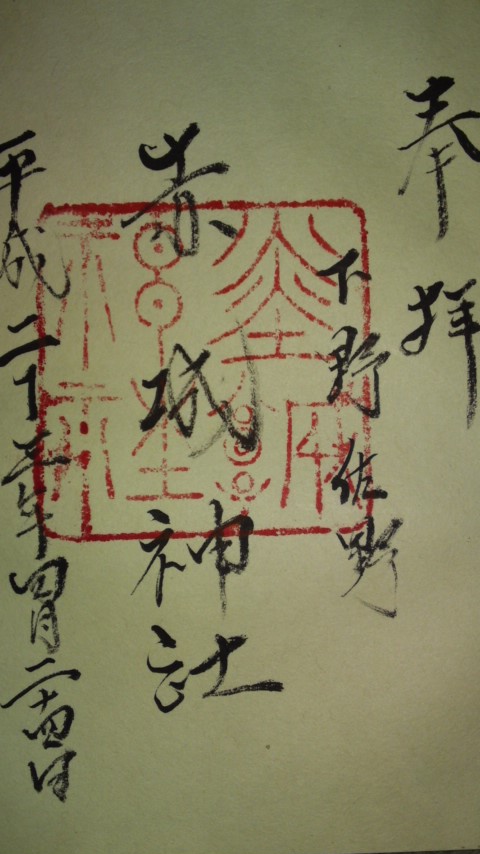 奉拝
下野 佐野
赤城神社
平成二十五年四月二十四日